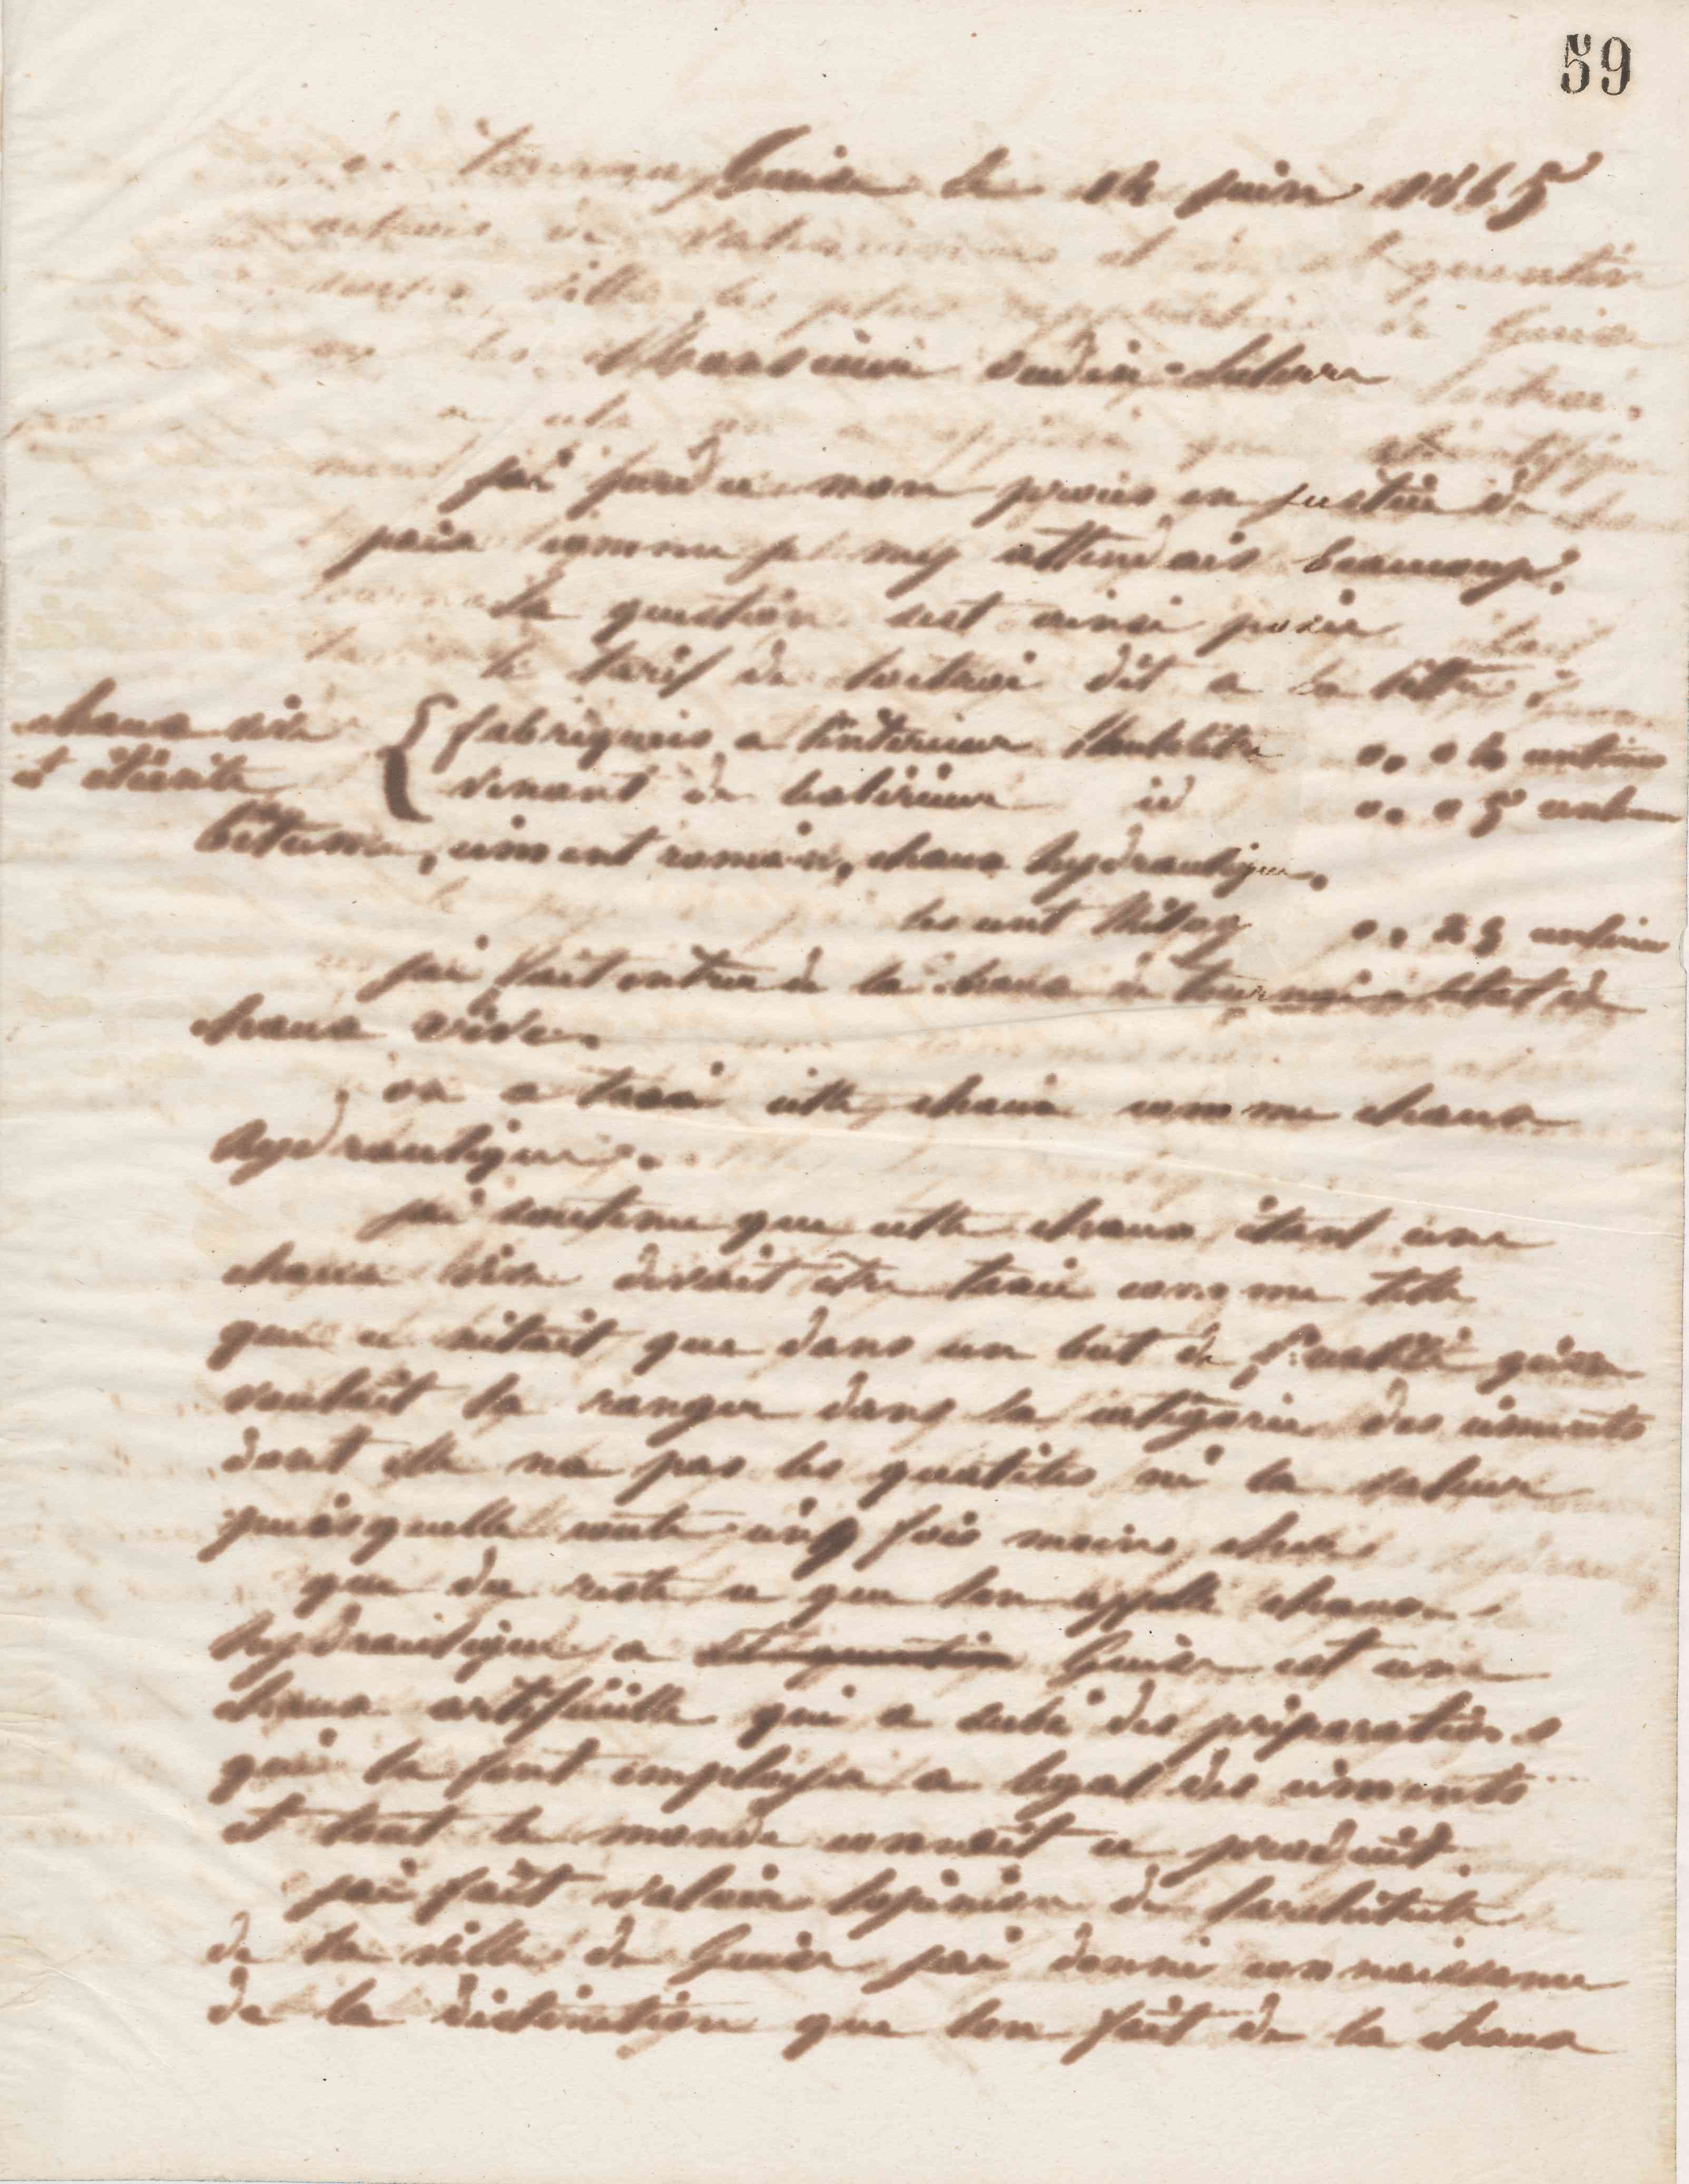 59
Guise le 14 juin 1865
Monsieur Oudin-Leclere
jai perdu mon procès en justice de
paix comme je my attendais beaucoup.
La question sest ainsi posée
le tarif de loctroi dit a la lettre
chaux vive
et éteinte
{ fabriquées a lintérieur lhectolitre 0. 04 centimes
venant de lextérieur id 0. 05 centimes
bitume, ciment romain, chaux hydraulique.
les cent kilog 0. 25 centimes
jai fait entrer de la chaux de tournai a létat de
chaux vive.
on a taxé cette chaux comme chaux
hydraulique.
jai soutenu que cette chaux étant une
chaux vive devait être taxée comme telle
que ce nétait que dans un but de fiscalité quon
voulait la ranger dans la catégorie des ciments
dont elle na pas les qualités ni la valeur
puisquelle coute cinq fois moins cher
que du reste ce que lon appelle chaux
hydraulique a St quentin Guise est une
chaux artificielle qui a subi des préparations
qui la font employer a légal des ciments
et tout le monde connait ce produit.
jai fait valoir lopinion de larchitecte
de la ville de Guise jai donné connaissance
de la distinction que lon fait de la chaux